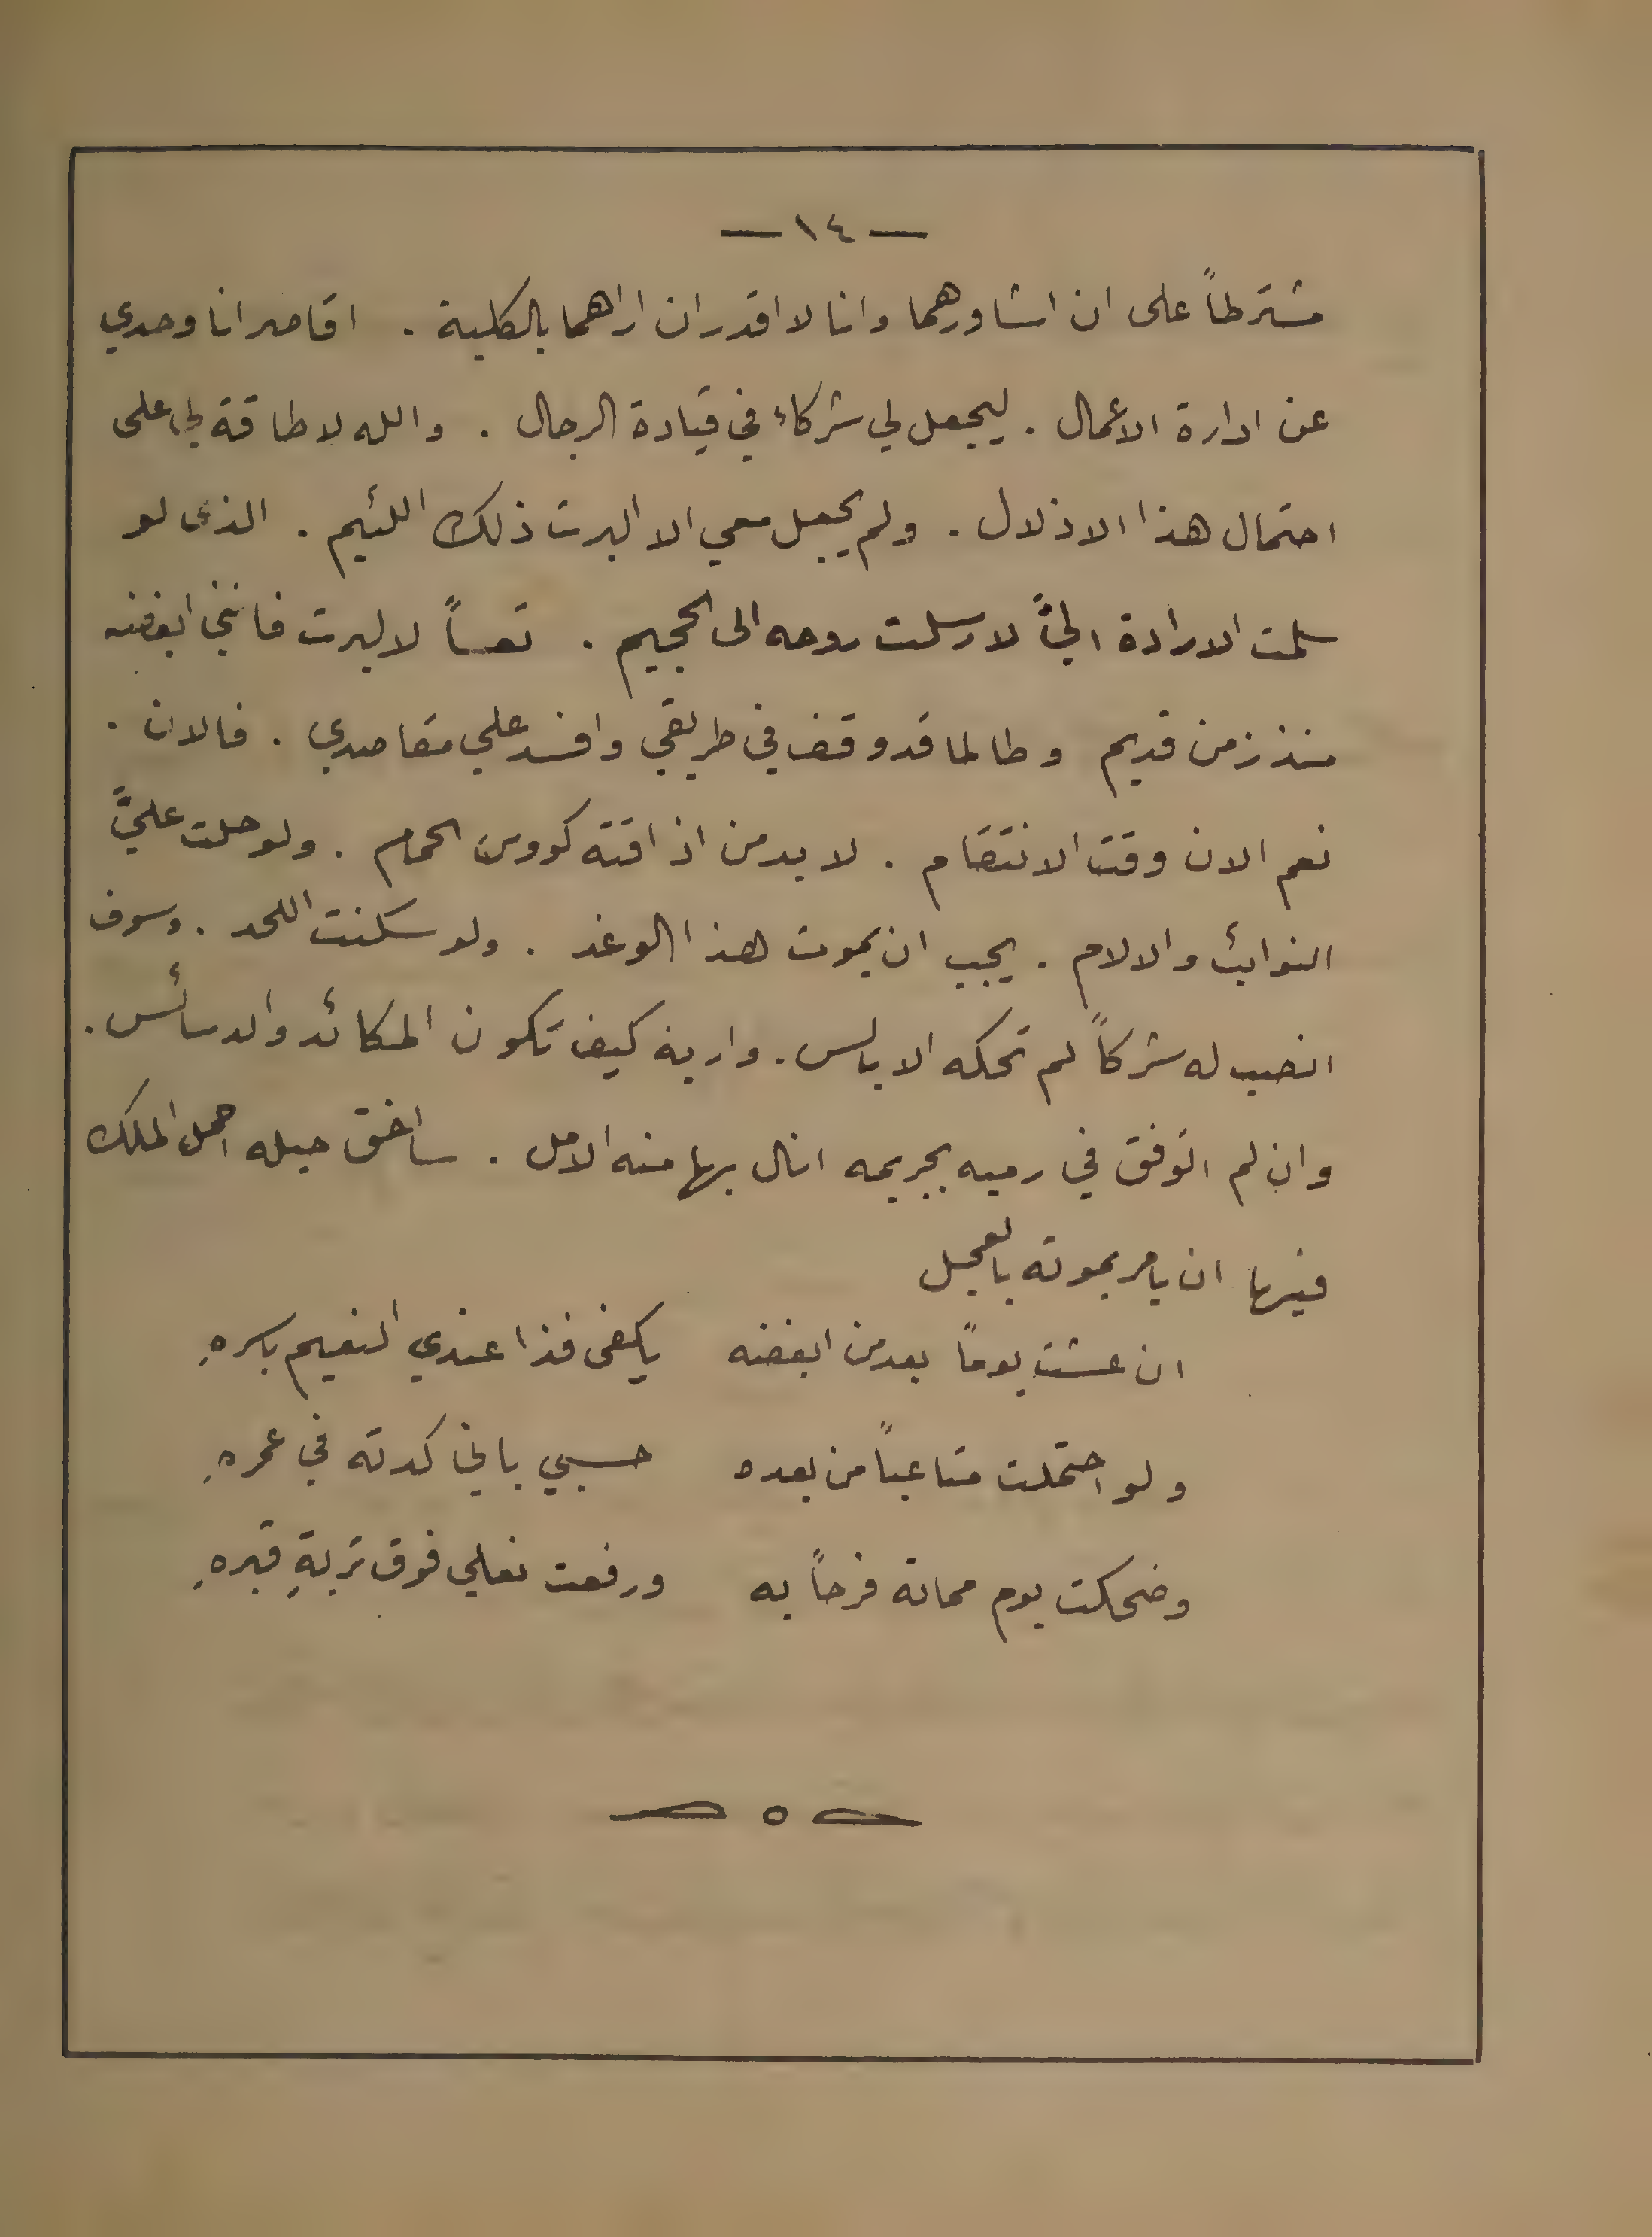 — ١٤ —
مشترطاً على ان اشاورهما وانا لا اقدر ان اراهما بالكلية . اقاصر انا وحدي
عن ادارة الاعمال . ليجعل لي شركاء في قيادة الرجال . والله لا طاقة لي على
احتمال هذا الاذلال . ولم يجعل معي الا البرت ذلك اللئيم . الذي لو
سلمت الارادة اليَّ لارسلت روحه الى الجحيم . تعساً لالبرت فانني ابغضه
منذ زمن قديم وطالما قد وقف في طريقي وافسد علي مقاصدي . فالان .
نعم الان وقت الانتقام . لا بد من اذاقته كووس الحمام . ولو حلت عليَّ
النوائب والالام . يجب ان يموت هذا الوغد . ولو سكنت اللحد . وسوف
انصب له شركاً لم تحكه الابالس . واريه كيف تكون المكائد والدسائس .
وان لم اتوفق في رميه بجريمه انال بها منه الامل . ساخلق حيله احمل الملك
فيها ان يامر بموته بالعجل
ان عشت يوماً بعد من ابغضه يكفى فذا عندي النعيم باسرهِ
ولو احتملت متاعباً من بعده حسبي باني كدته في عمرهِ
وضحكت يوم مماته فرحاً به ورفعت نعلي فوق تربةِ قبرهِ